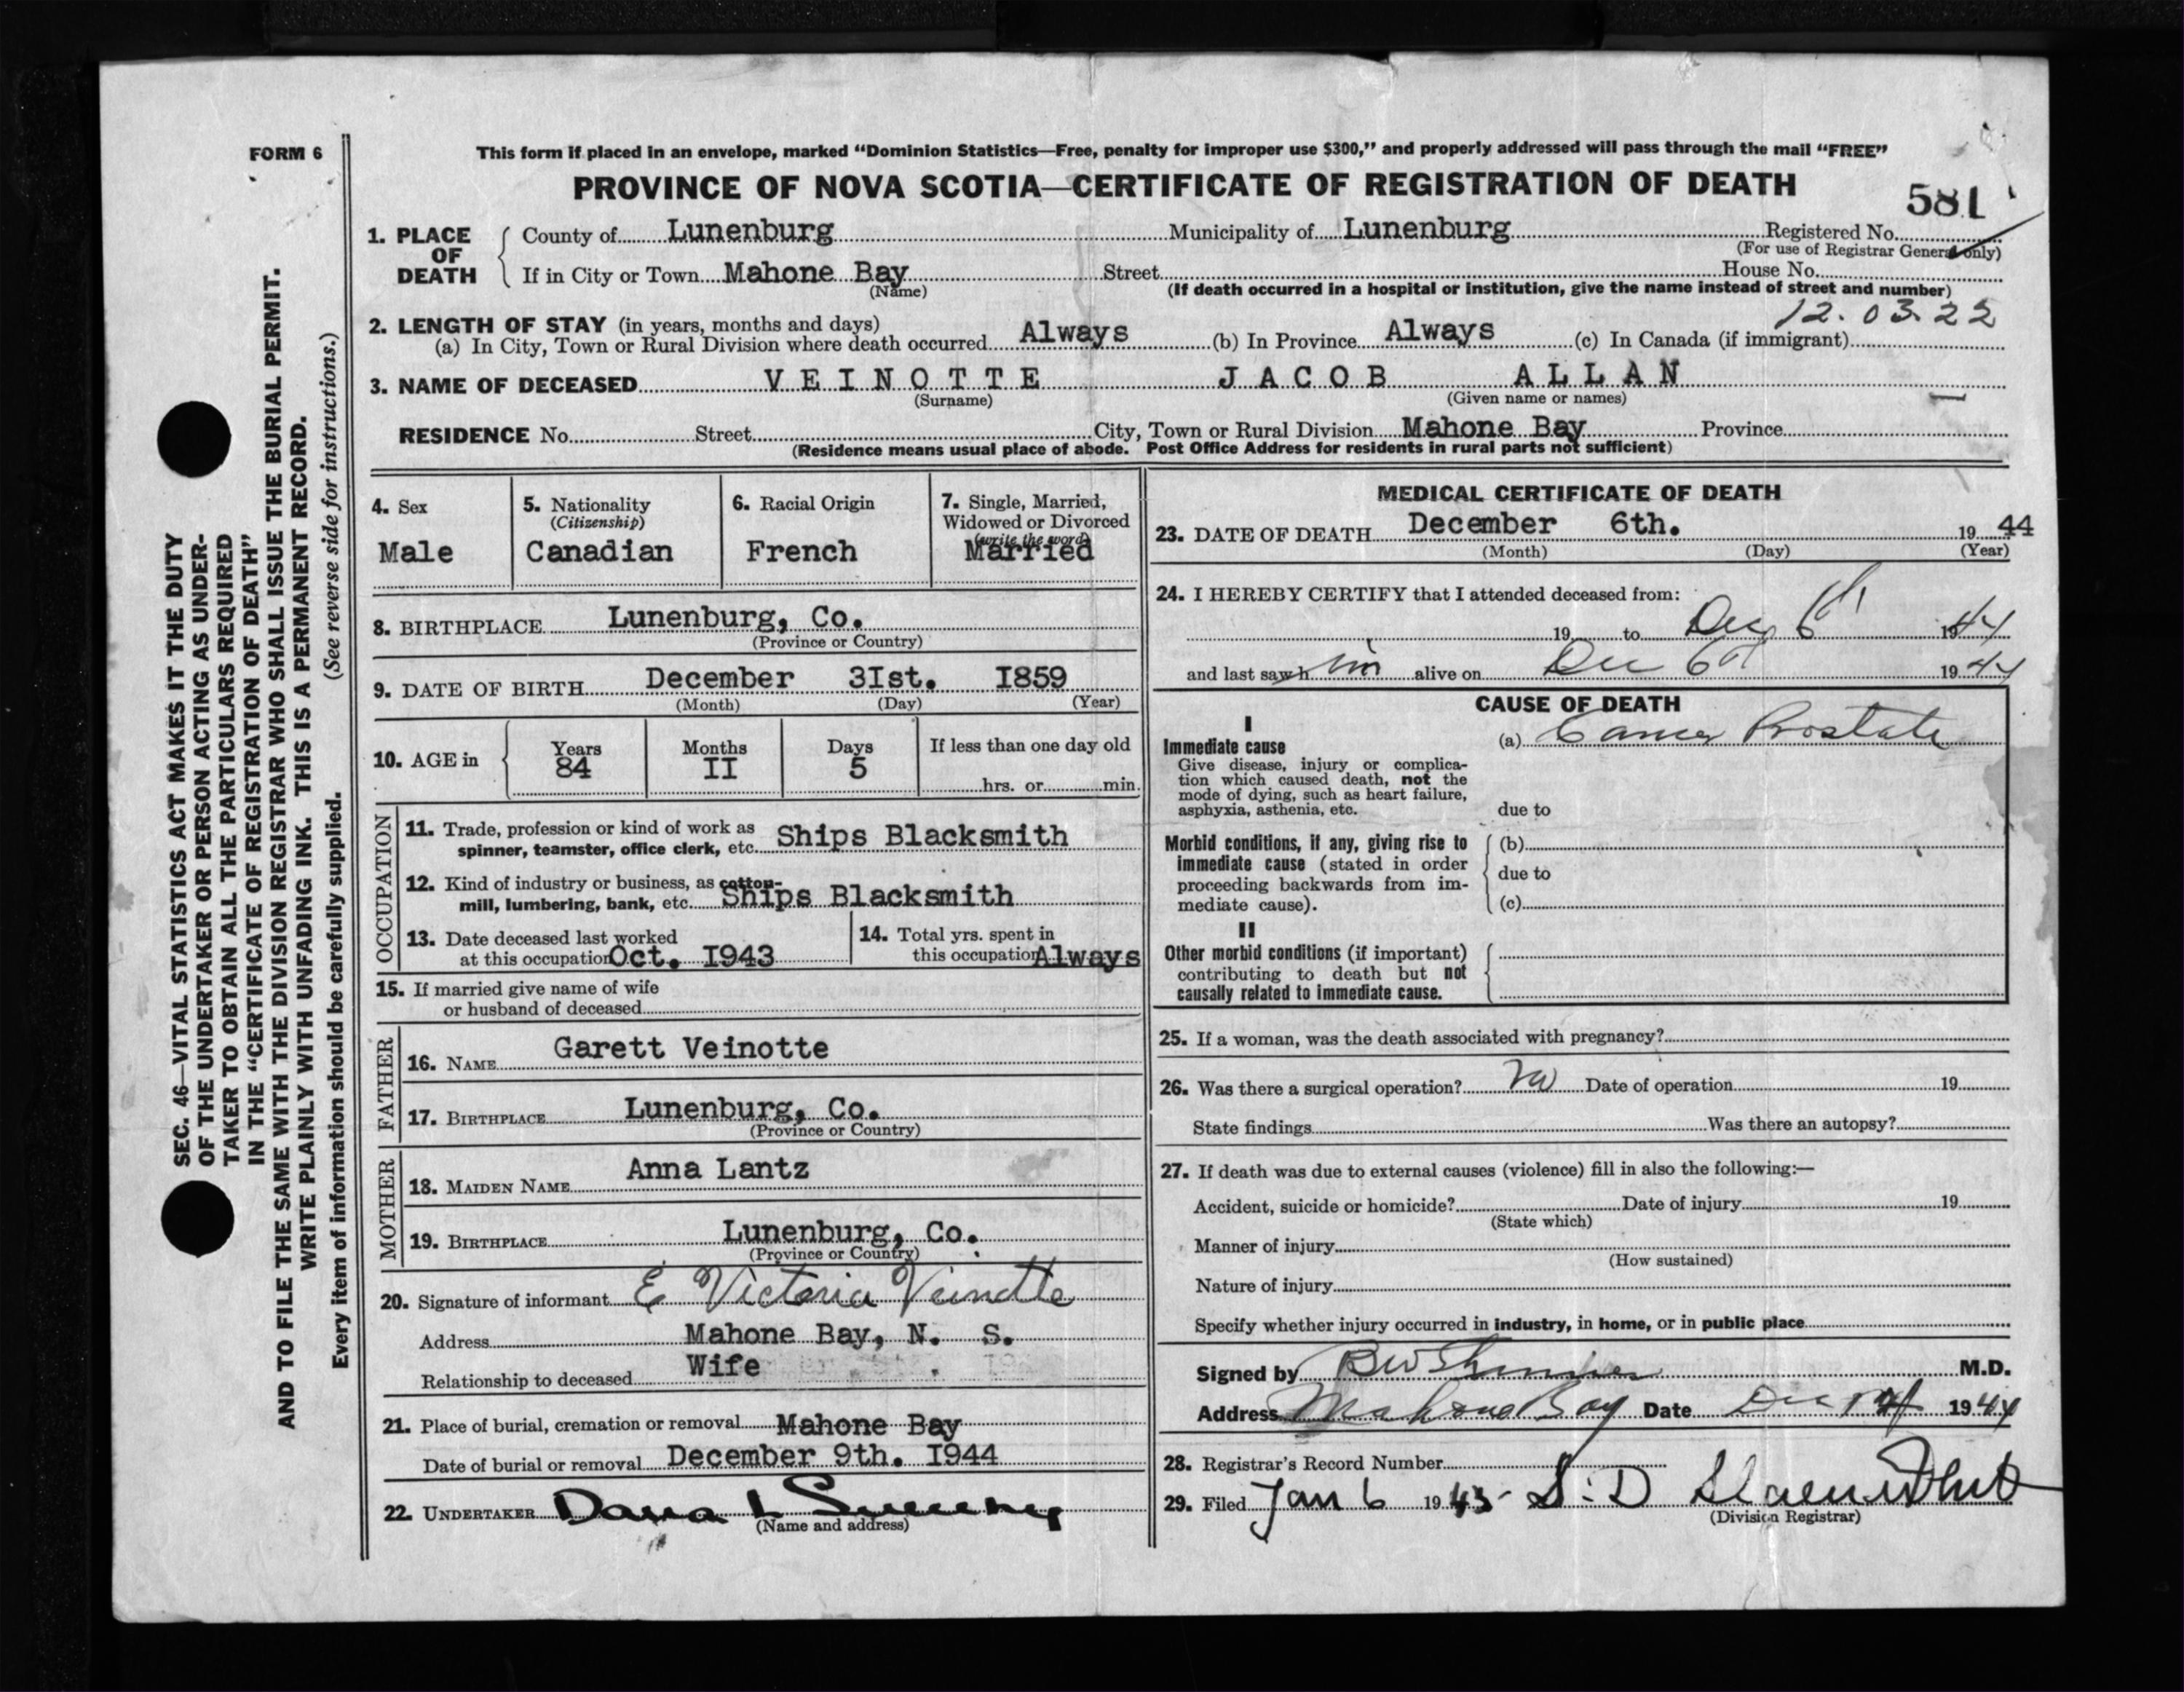 FORM 6
This form if placed in an envelope, marked “Dominion Statistics—Free, penalty for improper use $300,” and properly addressed will pass through the mail “FREE”
PROVINCE OF NOVA SCOTIA—CERTIFICATE OF REGISTRATION OF DEATH
581
1. PLACE OF DEATH
County of Lunenburg Municipality of Lunenburg Registered No.
(For use of Registrar General only)
If in City or Town Mahone Bay Street House No.
(Name) (If death occurred in a hospital or institution, give the name instead of street and number)
12.03.22
2. LENGTH OF STAY (in years, months and days)
(a) In City, Town or Rural Division where death occurred Always (b) In Province Always (c) In Canada (if immigrant)
3. NAME OF DECEASED VEINOTTE JACOB ALLAN
(Surname) (Given name or names)
RESIDENCE No. Street City, Town or Rural Division Mahone Bay Province
(Residence means usual place of abode. Post Office Address for residents in rural parts not sufficient)
4. Sex
Male
5. Nationality
(Citizenship)
Canadian
6. Racial Origin
French
7. Single, Married,
Widowed or Divorced
(write the word)
Married
8. BIRTHPLACE Lunenburg, Co.
(Province or Country)
9. DATE OF BIRTH December 3Ist. I859
(Month) (Day) (Year)
10. AGE in
Years Months Days If less than one day old
84 II 5
hrs. or min.
OCCUPATION
11. Trade, profession or kind of work as
spinner, teamster, office clerk, etc. Ships Blacksmith
12. Kind of industry or business, as cotton-
mill, lumbering, bank, etc. Ships Blacksmith
13. Date deceased last worked
at this occupation Oct. I943
14. Total yrs. spent in
this occupation Always
15. If married give name of wife
or husband of deceased
FATHER
16. NAME Garett Veinotte
17. BIRTHPLACE Lunenburg, Co.
(Province or Country)
MOTHER
18. MAIDEN NAME Anna Lantz
19. BIRTHPLACE Lunenburg, Co.
(Province or Country)
20. Signature of informant E Victoria Veinotte
Address Mahone Bay, N. S.
Relationship to deceased Wife
21. Place of burial, cremation or removal Mahone Bay
Date of burial or removal December 9th. I944
22. UNDERTAKER Dana L Sweeny
(Name and address)
MEDICAL CERTIFICATE OF DEATH
23. DATE OF DEATH December 6th. 19 44
(Month) (Day) (Year)
24. I HEREBY CERTIFY that I attended deceased from:
19 to Dec 6th 1944
and last saw h im alive on Dec 6th 19 44
CAUSE OF DEATH
I
Immediate cause
Give disease, injury or complica-
tion which caused death, not the
mode of dying, such as heart failure,
asphyxia, asthenia, etc.
(a) Cancer Prostate
due to
Morbid conditions, if any, giving rise to
immediate cause (stated in order
proceeding backwards from im-
mediate cause).
(b)
due to
(c)
II
Other morbid conditions (if important)
contributing to death but not
causally related to immediate cause.
25. If a woman, was the death associated with pregnancy?
26. Was there a surgical operation? No Date of operation 19
State findings Was there an autopsy?
27. If death was due to external causes (violence) fill in also the following:—
Accident, suicide or homicide? Date of injury 19
(State which)
Manner of injury
(How sustained)
Nature of injury
Specify whether injury occurred in industry, in home, or in public place
Signed by M.D.
Address Mahone Bay Date Dec 1944
28. Registrar's Record Number
29. Filed Jan 6 1945 S. D
(Division Registrar)
SEC. 46—VITAL STATISTICS ACT MAKES IT THE DUTY
OF THE UNDERTAKER OR PERSON ACTING AS UNDER-
TAKER TO OBTAIN ALL THE PARTICULARS REQUIRED
IN THE “CERTIFICATE OF REGISTRATION OF DEATH”
AND TO FILE THE SAME WITH THE DIVISION REGISTRAR WHO SHALL ISSUE THE BURIAL PERMIT.
WRITE PLAINLY WITH UNFADING INK. THIS IS A PERMANENT RECORD.
Every item of information should be carefully supplied. (See reverse side for instructions.)